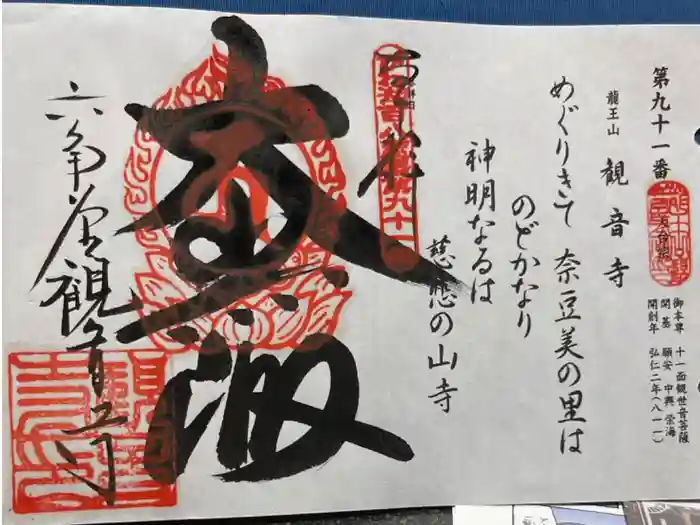 第九十一番
龍王山 観音寺
天台宗
御本尊 十一面観世音菩薩
開基 願安 中興 栄海
開創年 弘仁二年(八一一)
めぐりきて 奈豆美の里は
のどかなり
神明なるは
慈悲の山寺
奉拝
大悲殿
観音寺